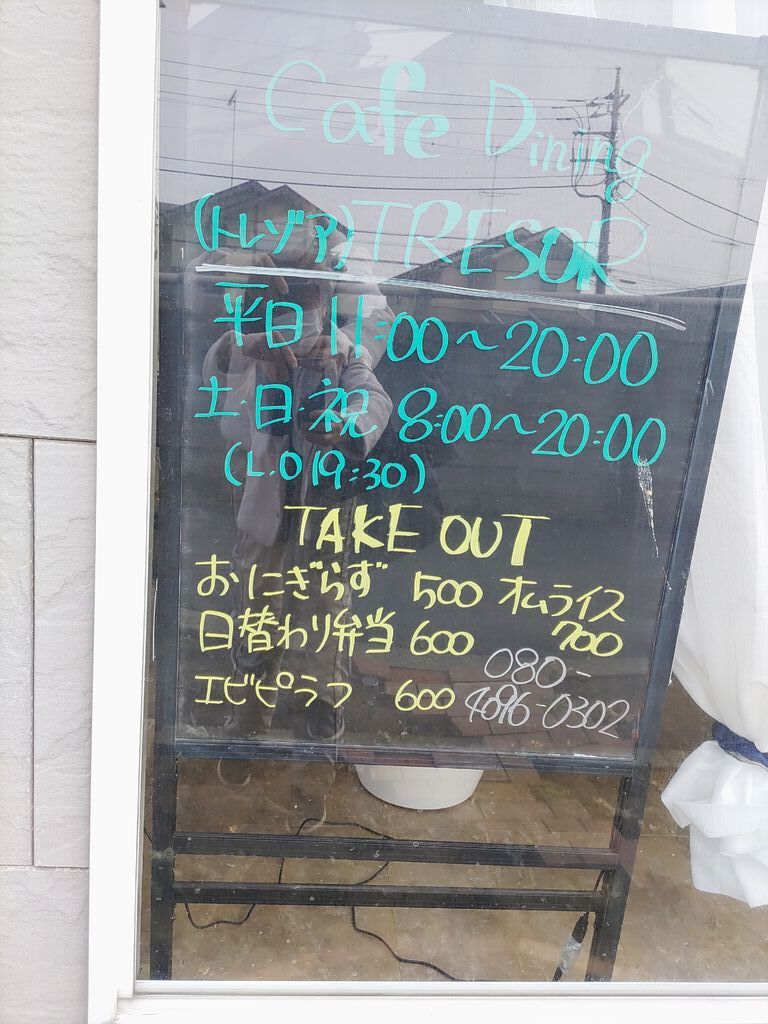 Cafe Dining
(トレゾア)TRESOR
平日 11:00〜20:00
土・日・祝 8:00〜20:00
(L.O 19:30)
TAKE OUT
おにぎらず 500 オムライス 700
日替わり弁当 600
エビピラフ 600
080-
4096-0302